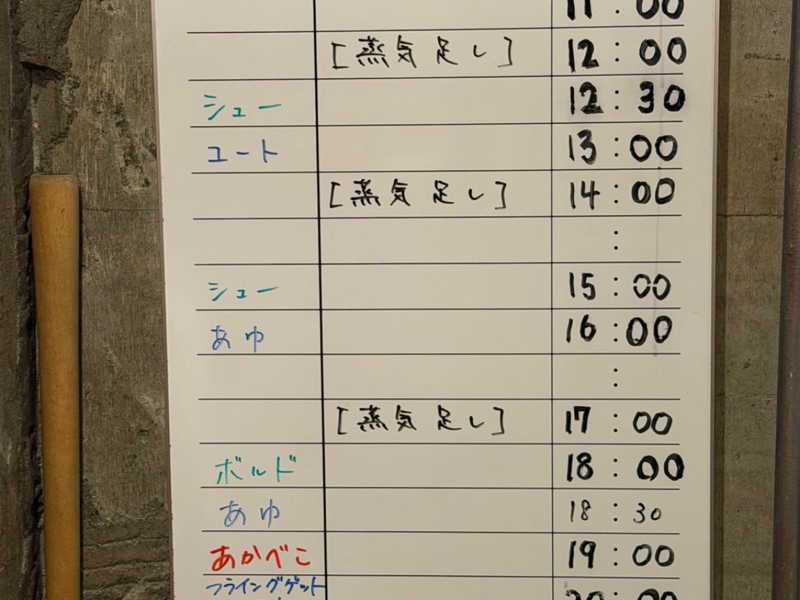 11:00
[蒸気足し] 12:00
シュー 12:30
ユート 13:00
[蒸気足し] 14:00
:
シュー 15:00
あゆ 16:00
:
[蒸気足し] 17:00
ボルド 18:00
あゆ 18:30
あかべこ 19:00
フライングゲット 20:00